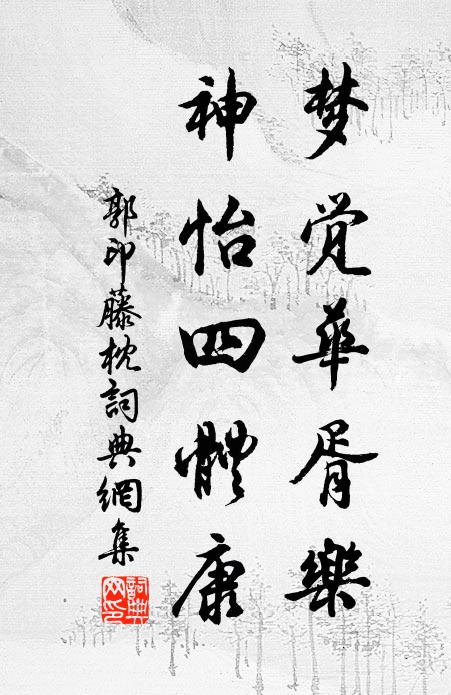 梦觉華胥樂
神怡四體康
郭印藤枕詞典網集